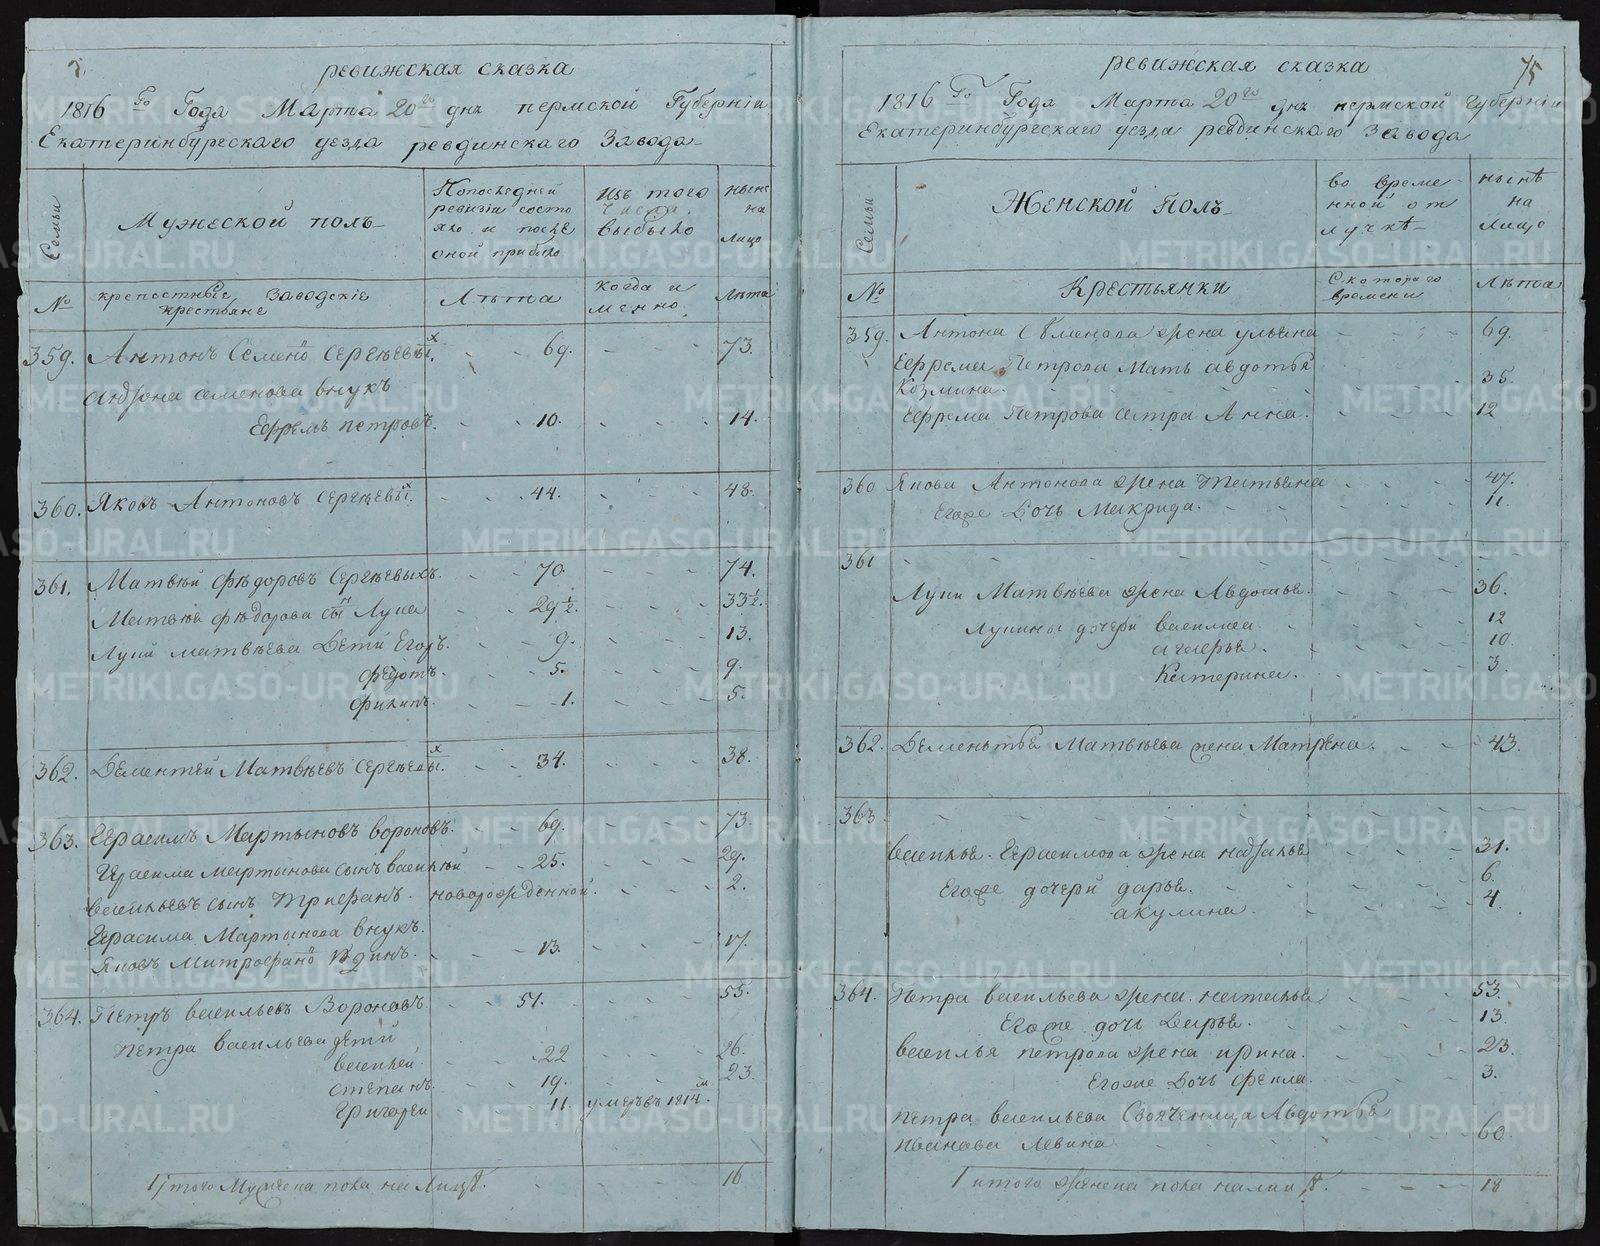 ревижская сказка
1816 го Года Марта 20 го дня пермской Губернiи
Екатеринбургскаго уезда ревдинскаго Завода
Семьи
Мужеской полъ
Попоследней
ревизiи состо
яло и после
оной прибыло
изъ того
числа
выбыло
ныне
на
лицо
№
крепостные Заводскiе
крестьяне
Лѣта
когда и
менно
Лѣта
359. Антонъ Семенов Сергѣевых. 69. 73.
Антона семенова внукъ
Ефремъ петровъ. 10. 14.
360. Яковъ Антоновъ Сергѣевых. 44. 48.
361. Матвѣй Фѣдоровъ Сергѣевыхъ. 70. 74.
Матвѣя фѣдорова сын Лупа 29 1/2. 33 1/2.
Лупы матвѣева Дети Егоръ. 9. 13.
Федотъ. 5. 9.
Филипъ. 1. 5.
362. Дементей Матвѣевъ Сергѣевых. 34. 38.
363. Герасимъ Мартыновъ Вороновъ. 69. 73.
Герасима мартынова сынъ василей 25. 29.
васильевъ сынъ Трифанъ. новорожденной. 2.
Герасима Мартынова внукъ.
Яковъ Митрофанов 13. 17.
364. Петръ васильевъ Вороновъ. 51. 55.
Петра васильева дети
василей. 22 26.
степанъ. 19. 23.
Григорей 11. умеръ въ 1814 м.
Итого Мужеска пола на Лицѣ. 16
75
ревижская сказка
1816 го Года Марта 20 го дня пермской Губернiи
Екатеринбургскаго уезда ревдинскаго Завода
Семьи
Женской Полъ
во време
нной от
лучкѣ
нынѣ
на
лицо
№
Крестьянки
Скотораго
времени
Лѣта
359. Антона Семенова жена ульяна 69.
Ефрема Петрова Мать авдотья
Козмина. 35.
Ефрема Петрова сестра Анна. 12
360 Якова Антонова жена Татьяна 47.
Егоже Дочь Макрида. 11.
361
Лупы Матвѣева жена Авдотья. 36.
Лупины дочери василиса 12
10.
Катерина. 3.
362. Дементья Матвѣева жена Матрена. 43.
363
василья Герасимова жена наталья 31.
Егоже дочери дарья. 6.
акулина. 4.
364. Петра васильева жена наталья 53.
Егоже дочь Дарья. 13.
василья петрова жена ирина. 23.
Егоже Дочь Фекла. 3.
Петра васильева Свояченица Авдотья
Иванова Левина 60.
Итого женска пола налицѣ. 18
METRIKI.GASO-URAL.RU